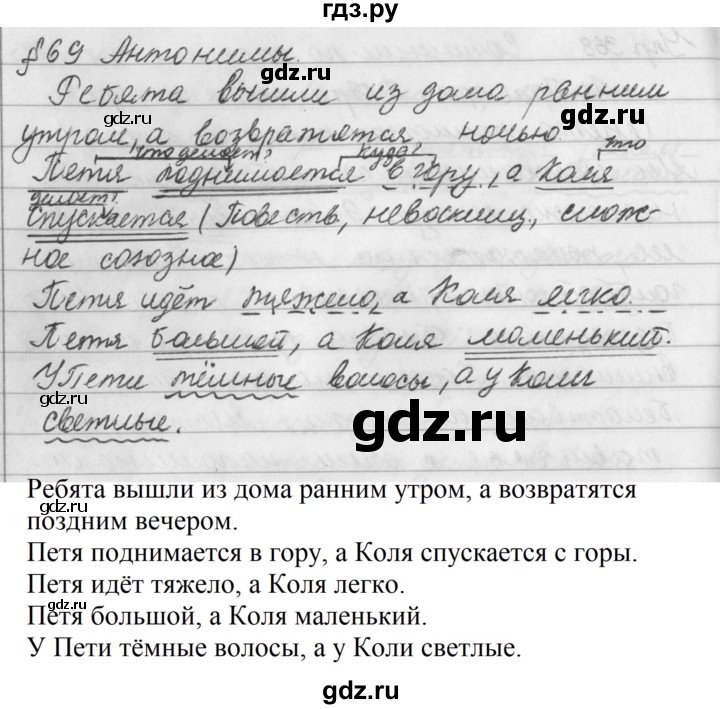 гдз.ру
§69 Антонимы.
Ребята вышли из дома ранним
утром, а возвратятся ночью.
что делает? куда? что
Петя поднимается в гору, а Коля
делает?
спускается (Повеств, невосклиц, слож-
ное союзное)
Петя идёт тяжело, а Коля легко.
Петя большой, а Коля маленький.
У Пети тёмные волосы, а у Коли
светлые.
gdz.ru
gdz.ru
gdz.ru
Ребята вышли из дома ранним утром, а возвратятся
поздним вечером.
Петя поднимается в гору, а Коля спускается с горы.
Петя идёт тяжело, а Коля легко.
Петя большой, а Коля маленький.
У Пети тёмные волосы, а у Коли светлые.
gdz.ru
gdz.ru
gdz.ru